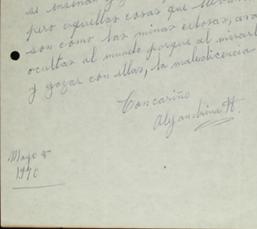 es
pero aquellas cosas que
son como las minas
ocultas al mundo porque al mirarl
y gozar con ellas, la maledicencia
Con cariño
Alejandrina H.
Mayo 8
1970